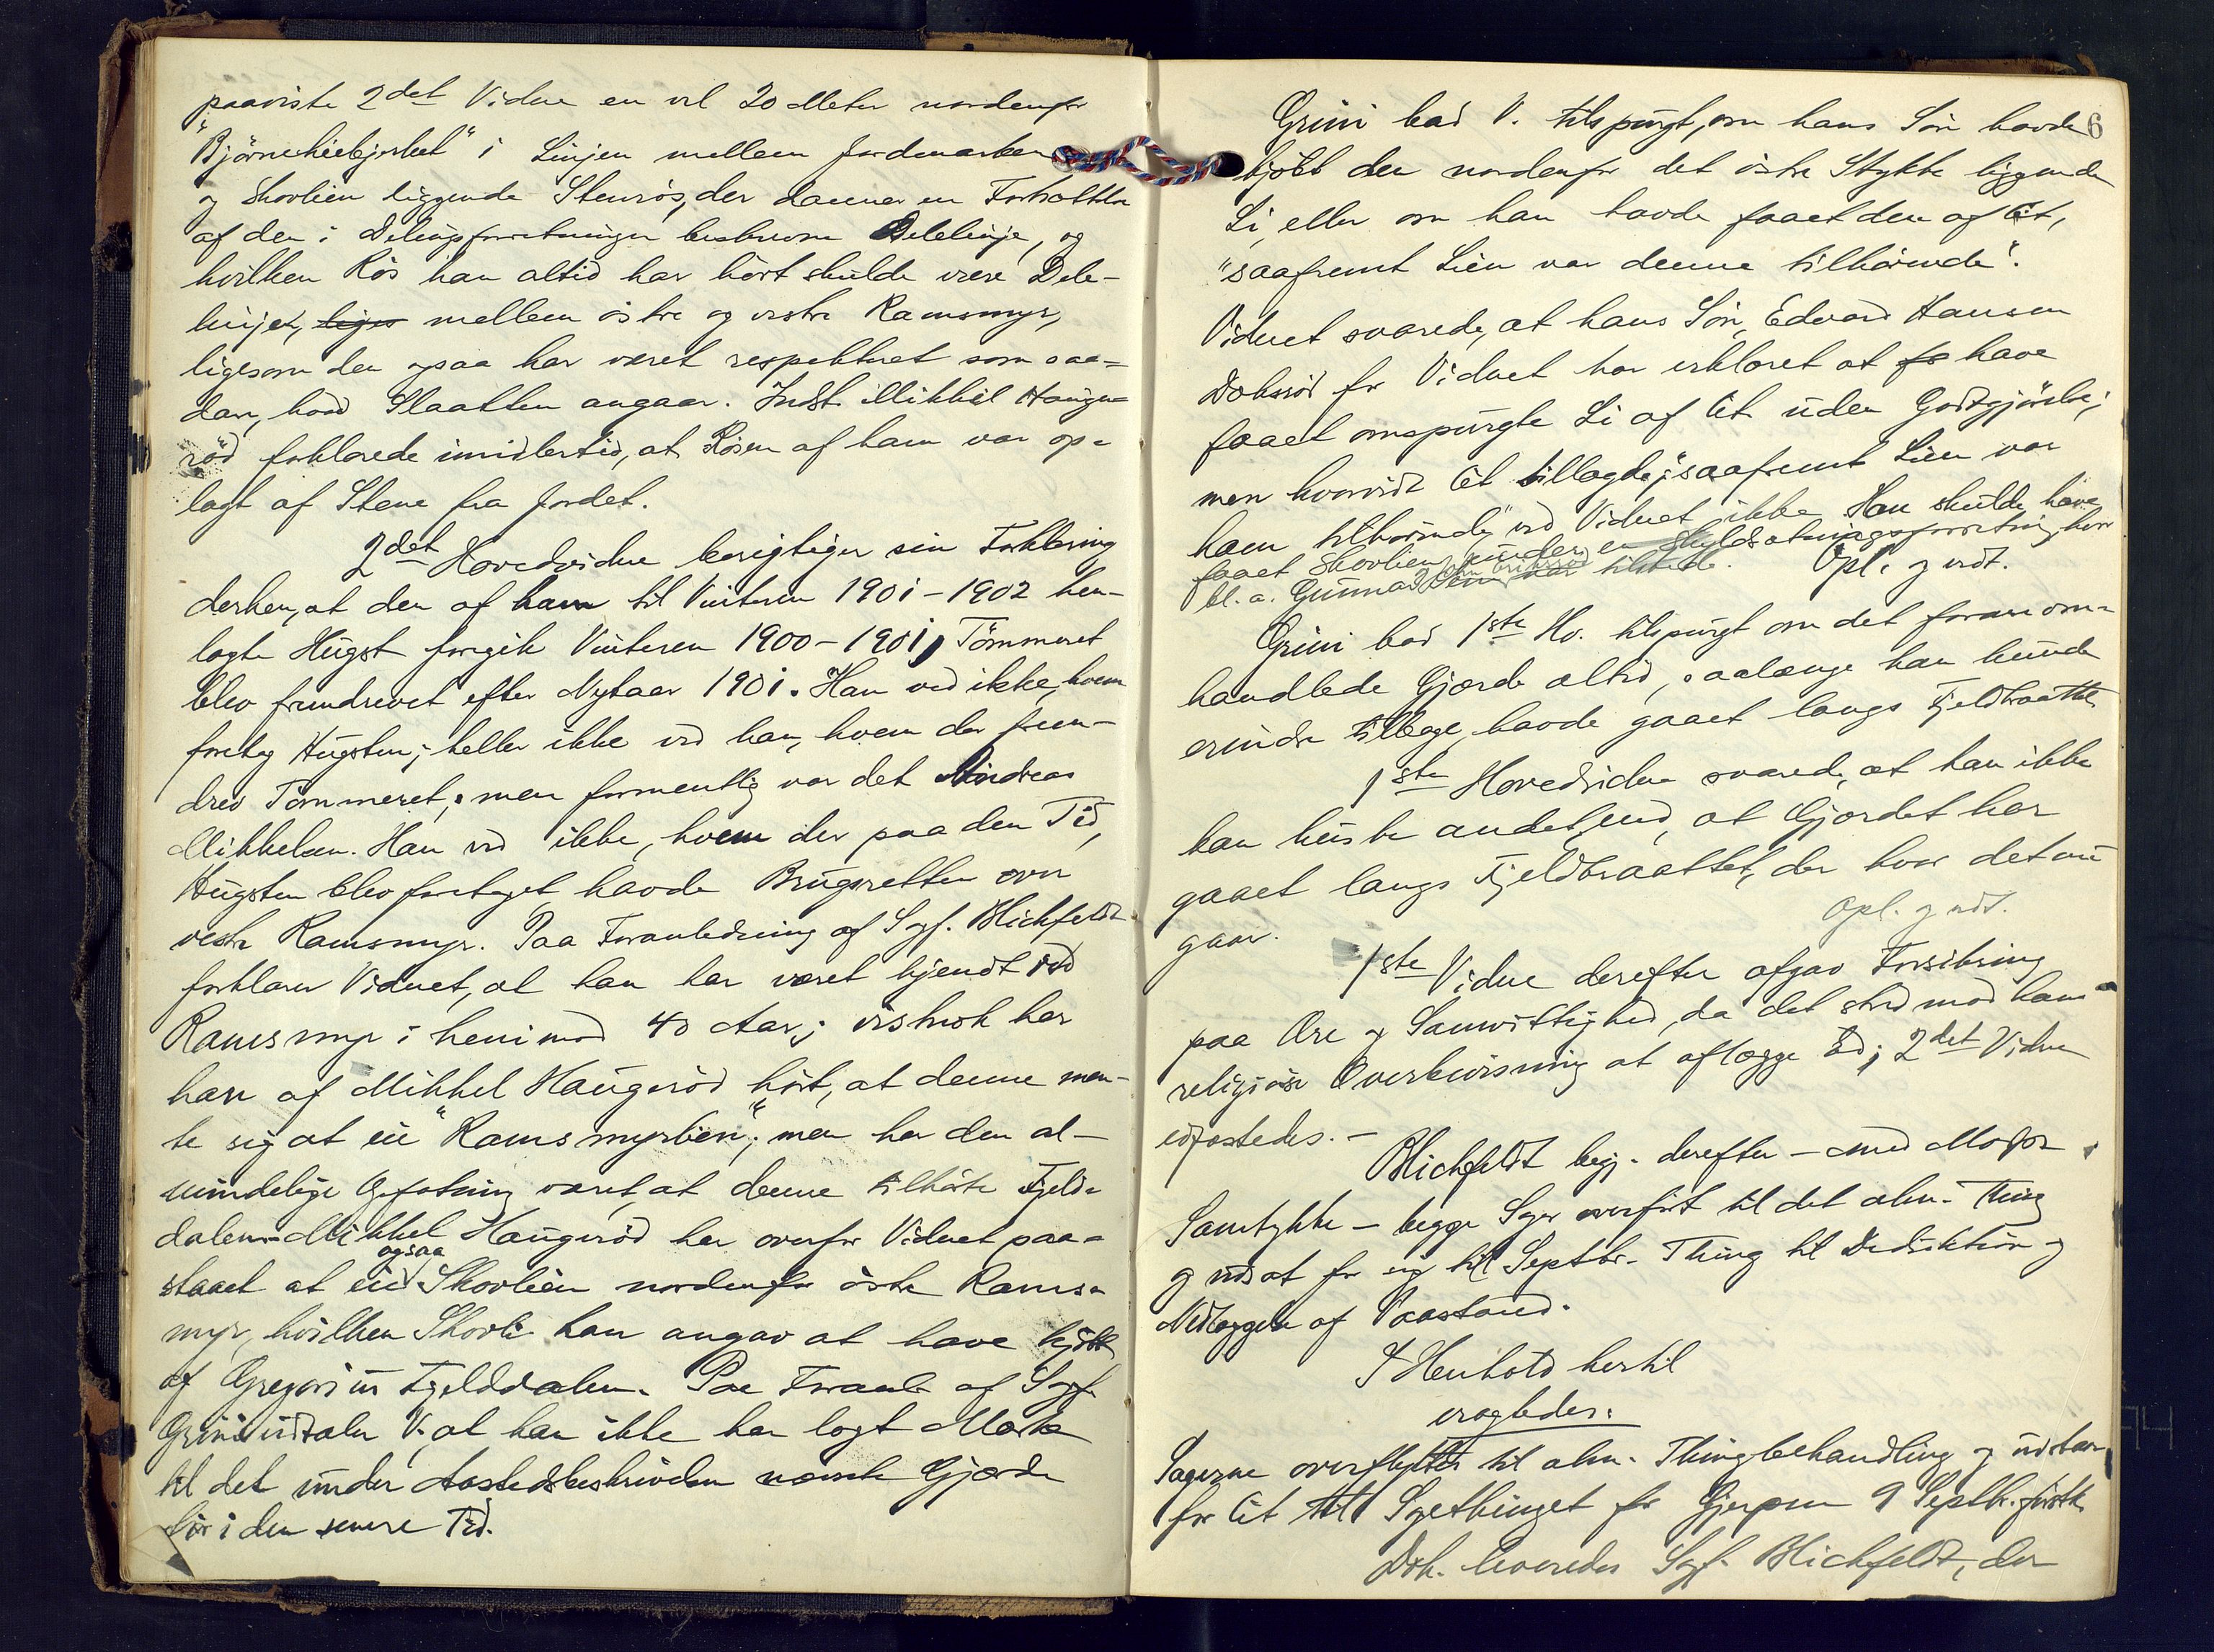 paaviste 2det Vidne en vel 20 Meter nordenfor
"Björnehiebjerket" i Linjen mellem Jordemarken
og Skovlien liggende Stenrös, der danner en Fortsættelse
af den i Delingsforretningen beskrevne Delelinje, og
hvilken Rös han altid har hört skulde være Dele-
linjen, liges mellem östre og vestre Ramsmyr,
ligesom den ogsaa har været respekteret som saa-
dan, hvad Slaatten angaar. Indst. Mikkel Hauge-
röd forklarede imidlertid, at Rösen af ham var op-
lagt af Stene fra Jordet.
2det Hovedvidne berigtiger sin Forklaring
derhen, at den af ham til Vinteren 1901-1902 hen-
lagte Hugst foregik Vinteren 1900-1901, Tömmeret
blev fremdrevet efter Nytaar 1901. Han ved ikke, hvem
foretog Hugsten; heller ikke ved han, hvem der frem-
drev Tömmeret, men formentlig var det Andreas
Mikkelsen. Han ved ikke, hvem der paa den Tid,
Hugsten blev foretaget, havde Brugsretten over
vestre Ramsmyr. Paa Foranledning af Sagf. Blichfeldt
forklarer Vidnet, at han har været kjendt ved
Ramsmyr i henimod 40 Aar; vistnok har
han af Mikkel Haugeröd hört, at denne men-
te sig at eie "Ramsmyrlien"; men har den al-
mindelige Opfatning været, at denne tilhörte Fjeld-
dalen. Mikkel Haugeröd har overfor Vidnet paa-
staaet at eie ogsaa Skovlien nordenfor östre Rams-
myr, hvilken Skovli han angav at have kjöbt
af Gregori in Fjelddalen. Paa Foranl. af Sagf.
Grini udtaler V. at han ikke har lagt Mærke
til det under Aastedsbeskrivelsen nævnte Gjærde
för i den senere Tid.
6
Grini bad V. tilspurgt, om hans Sön havde
kjöbt den nordenfor det östre Stykke liggende
Li, eller om han havde faaet den af Cit,
"saafremt Lien var denne tilhörende".
Vidnet svarede, at hans Sön, Edvard Hansen
Doksröd for Vidnet har erklæret at fo have
faaet omspurgte Li af Cit uden Godtgjörelse;
men hvorvidt Cit tillagde: "saafremt Lien var
ham tilhörende" ved Vidnet ikke. Han skulde have
faaet Skovlien under en Skyldsætningsforretning, hvor
bl. a. Gunnar var tilstede. Opl. og vedt.
Grini bad 1ste Hv. tilspurgt om det foran om-
handlede Gjærde altid, saalænge han kunde
erindre tilbage, havde gaaet langs Fjeldbraattet.
1ste Hovedvidne svarede, at han ikke
kan huske andet, end, at Gjærdet har
gaaet langs Fjeldbraattet, der hvor det nu
gaar.
Opl. og vedt.
1ste Vidne derefter afgav Forsikring
paa Ære og Samvittighed, da det stred mod hans
religiöse Overbevisning at aflægge Ed; 2det Vidne
edfæstedes. -
Blichfeldt begj. derefter - med Modp.
Samtykke - begge Sager overfört til det alm. Thing
og udsat for sig til Septbr. Thing til Deduktion og
Nedlæggelse af Paastand.
I Henhold hertil
eragtedes:
Sagerne overflyttes til alm. Thingbehandling og udstaar
for Cit til Sagethinget for Gjerpen 9 Septbr. förstk.
Dok. leveredes Sagf. Blichfeldt, der